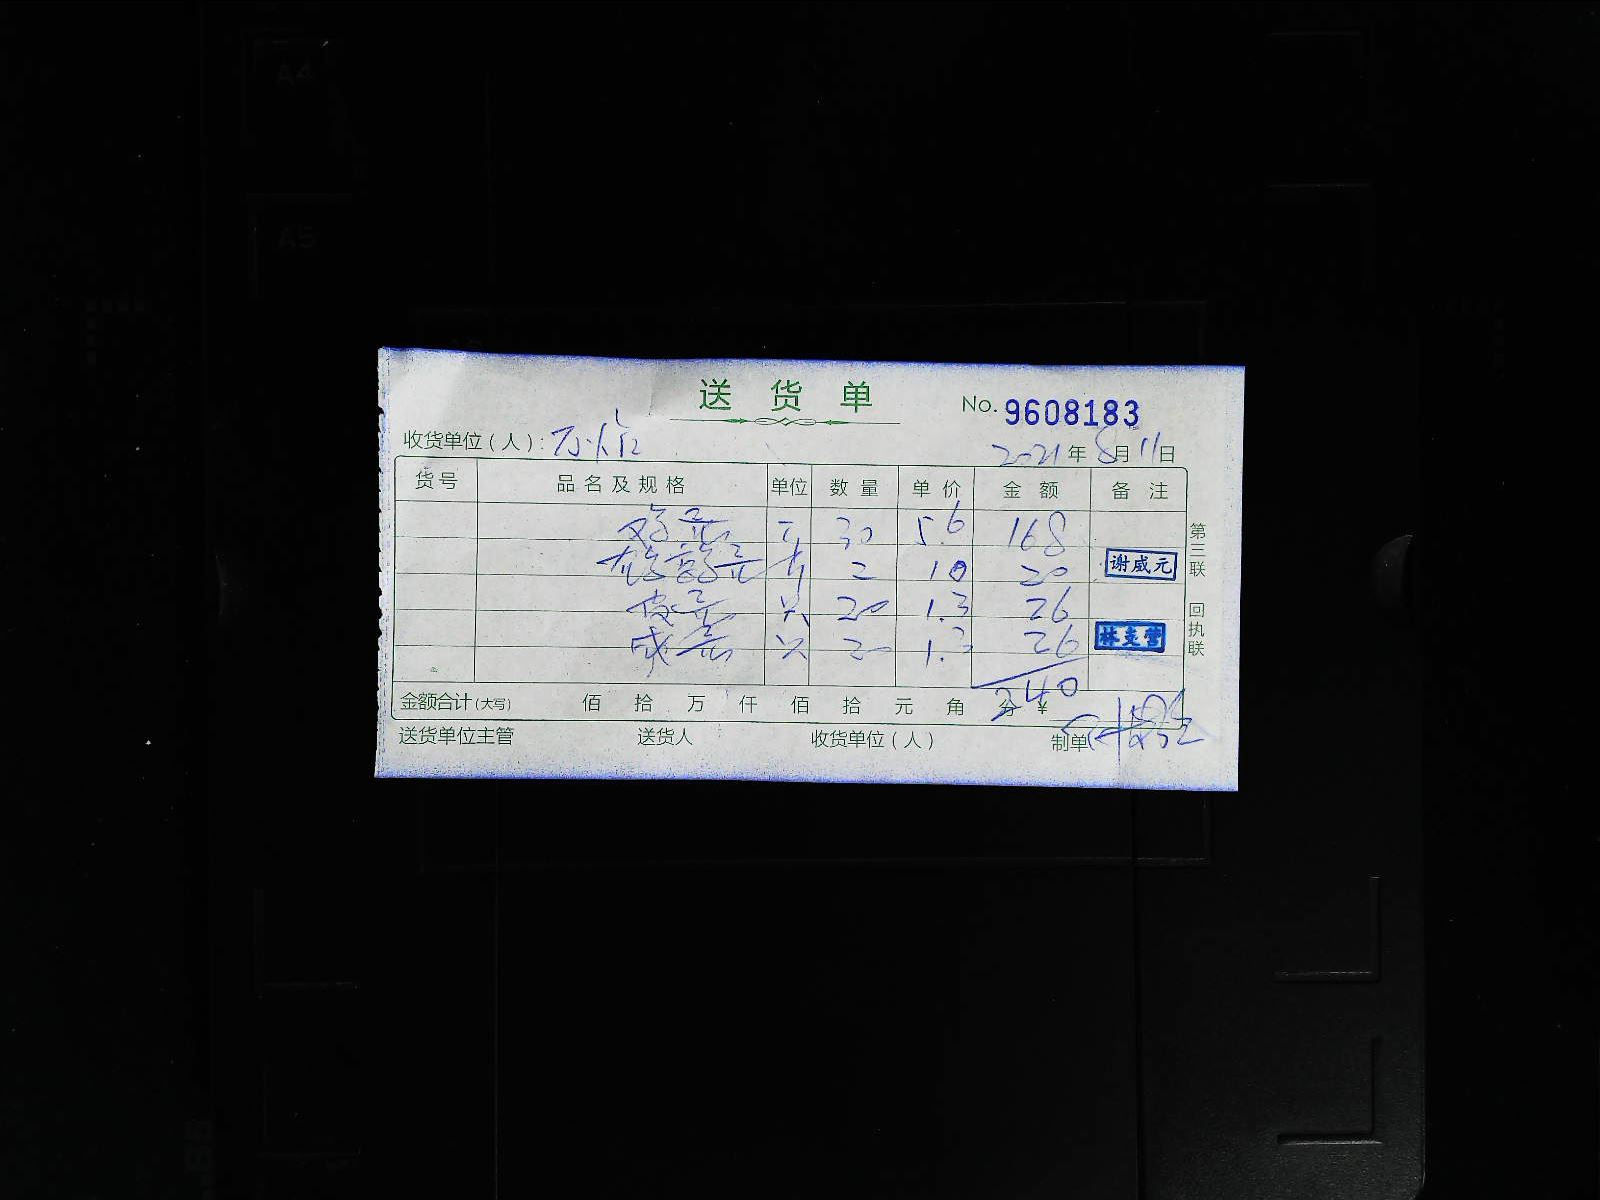 送货单
No. 9608183
收货单位（人）：
2021年8月11日
货号 品名及规格 单位 数量 单价 金额 备注
30 5.6 168
2 10 20
谢威元
皮蛋 只 20 1.3 26
咸蛋 只 20 1.3 26
240
金额合计(大写) 佰 拾 万 仟 佰 拾 元 角 分 ¥
送货单位主管 送货人 收货单位（人） 制单
第三联 回执联